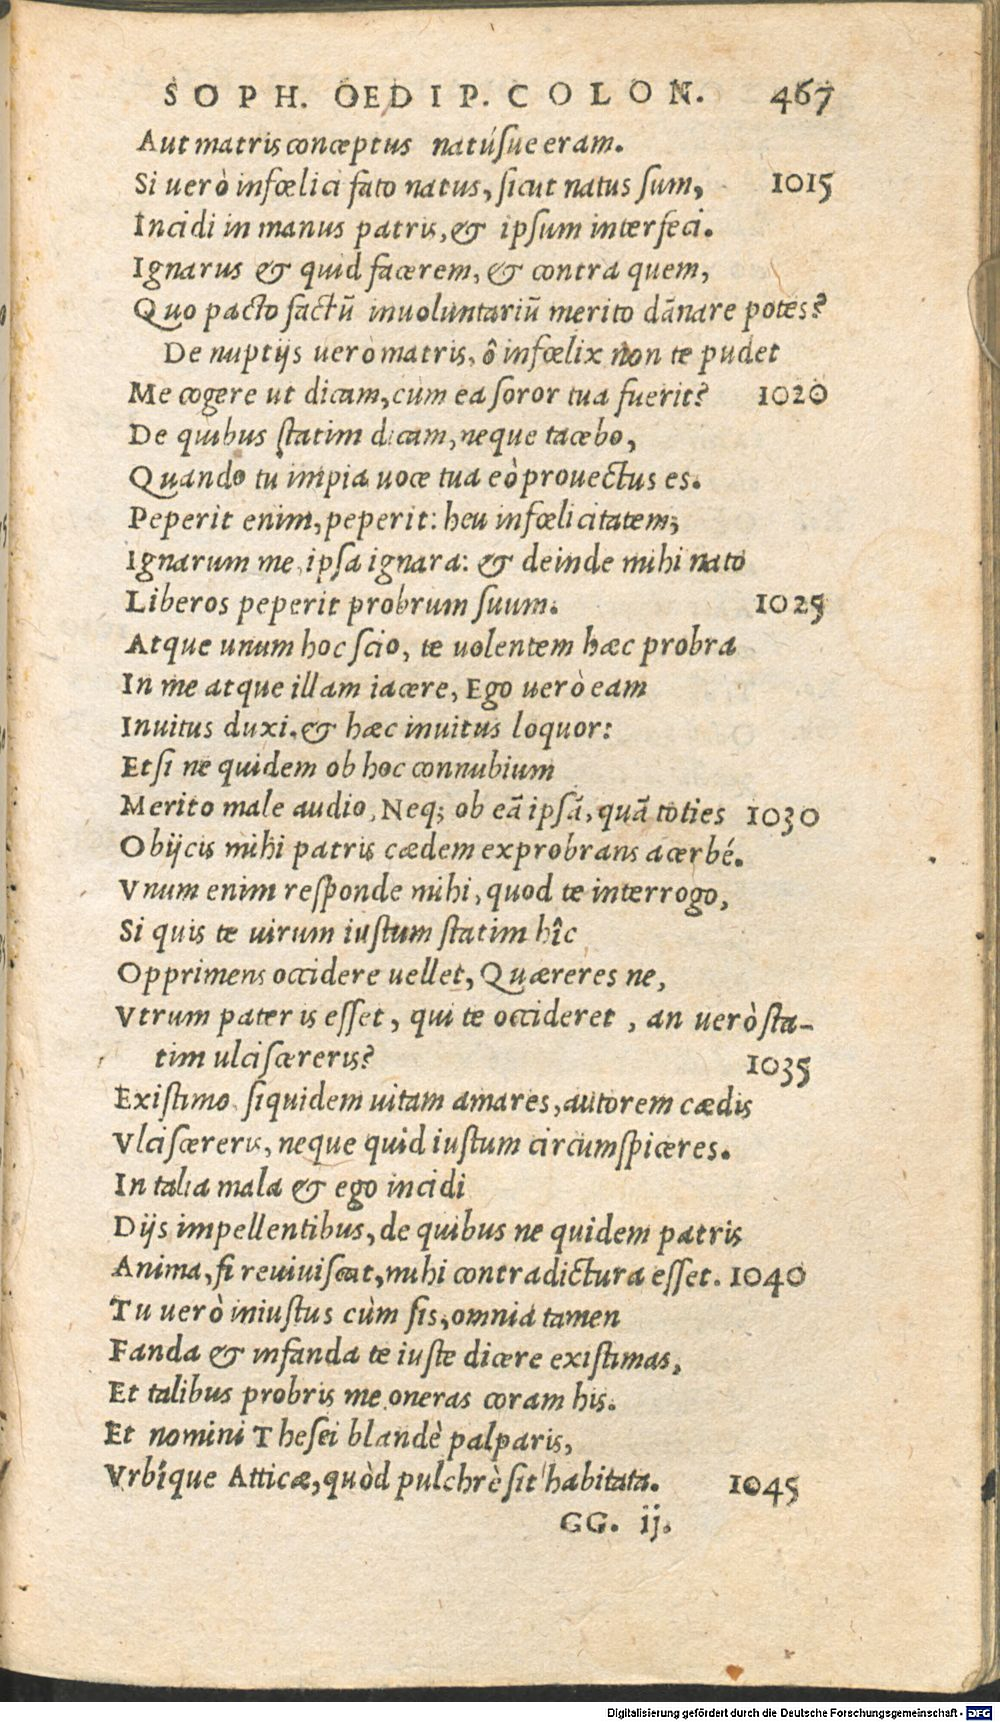 SOPH. OEDIP. COLON. 467
Aut matris conceptus natúsue eram.
Si uerò infœlici fato natus, sicut natus sum, 1015
Incidi in manus patris, & ipsum interfeci.
Ignarus & quid facerem, & contra quem,
Quo pacto factū inuoluntariū merito dānare potes?
De nuptijs uerò matris, ô infœlix non te pudet
Me cogere ut dicam, cùm ea soror tua fuerit? 1020
De quibus statim dicam, neque tacebo,
Quando tu impia uoce tua eò prouectus es.
Peperit enim, peperit: heu infœlicitatem;
Ignarum me, ipsa ignara: & deinde mihi nato
Liberos peperit probrum suum. 1025
Atque unum hoc scio, te uolentem hæc probra
In me atque illam iacere, Ego uerò eam
Inuitus duxi, & hæc inuitus loquor:
Etsi ne quidem ob hoc connubium
Merito male audio, Neq; ob eā ipsā, quā toties 1030
Obijcis mihi patris cædem exprobrans acerbé.
Vnum enim responde mihi, quod te interrogo,
Si quis te uirum iustum statim hîc
Opprimens occidere uellet, Quæreres ne,
Vtrum pater is esset, qui te occideret, an uerò sta-
tim ulciscereris? 1035
Existimo siquidem uitam amares, autorem cædis
Vlciscereris, neque quid iustum circumspiceres.
In talia mala & ego incidi
Dijs impellentibus, de quibus ne quidem patris
Anima, si reuiuiscat, mihi contradictura esset. 1040
Tu uerò iniustus cùm sis, omnia tamen
Fanda & infanda te iuste dicere existimas,
Et talibus probris me oneras coram his.
Et nomini Thesei blandè palparis,
Vrbíque Atticæ, quòd pulchrè sit habitata. 1045
GG. ij.
Digitalisierung gefördert durch die Deutsche Forschungsgemeinschaft - DFG